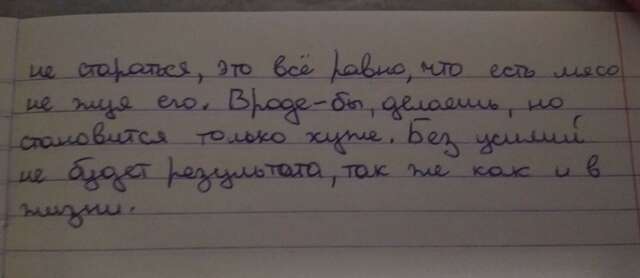 не стараться, это всё равно, что есть мясо
не жуя его. Вроде-бы, делаешь, но
становится только хуже. Без усилий
не будет результата, так же как и в
жизни.